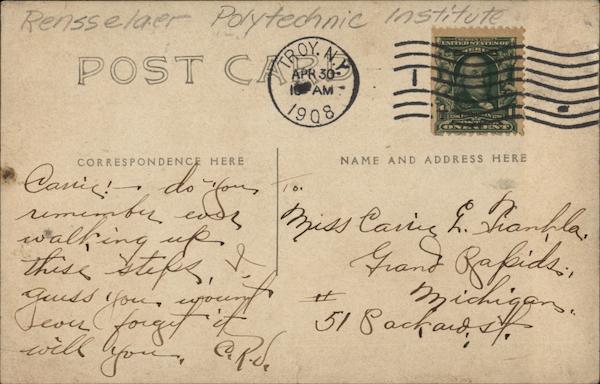 Rensselaer Polytechnic Institute
POST CARD
TROY, N.Y.
APR 30
10 AM
1908
1
UNITED STATES OF
ONE CENT
CORRESPONDENCE HERE
NAME AND ADDRESS HERE
Carrie! - do you
remember ever
walking up
these steps, I
guess you wount
ever forget it
will you. C.R.D.
To.
Miss Carrie L.
Grand Rapids.,
Michigan.
# 51 Packard, st.